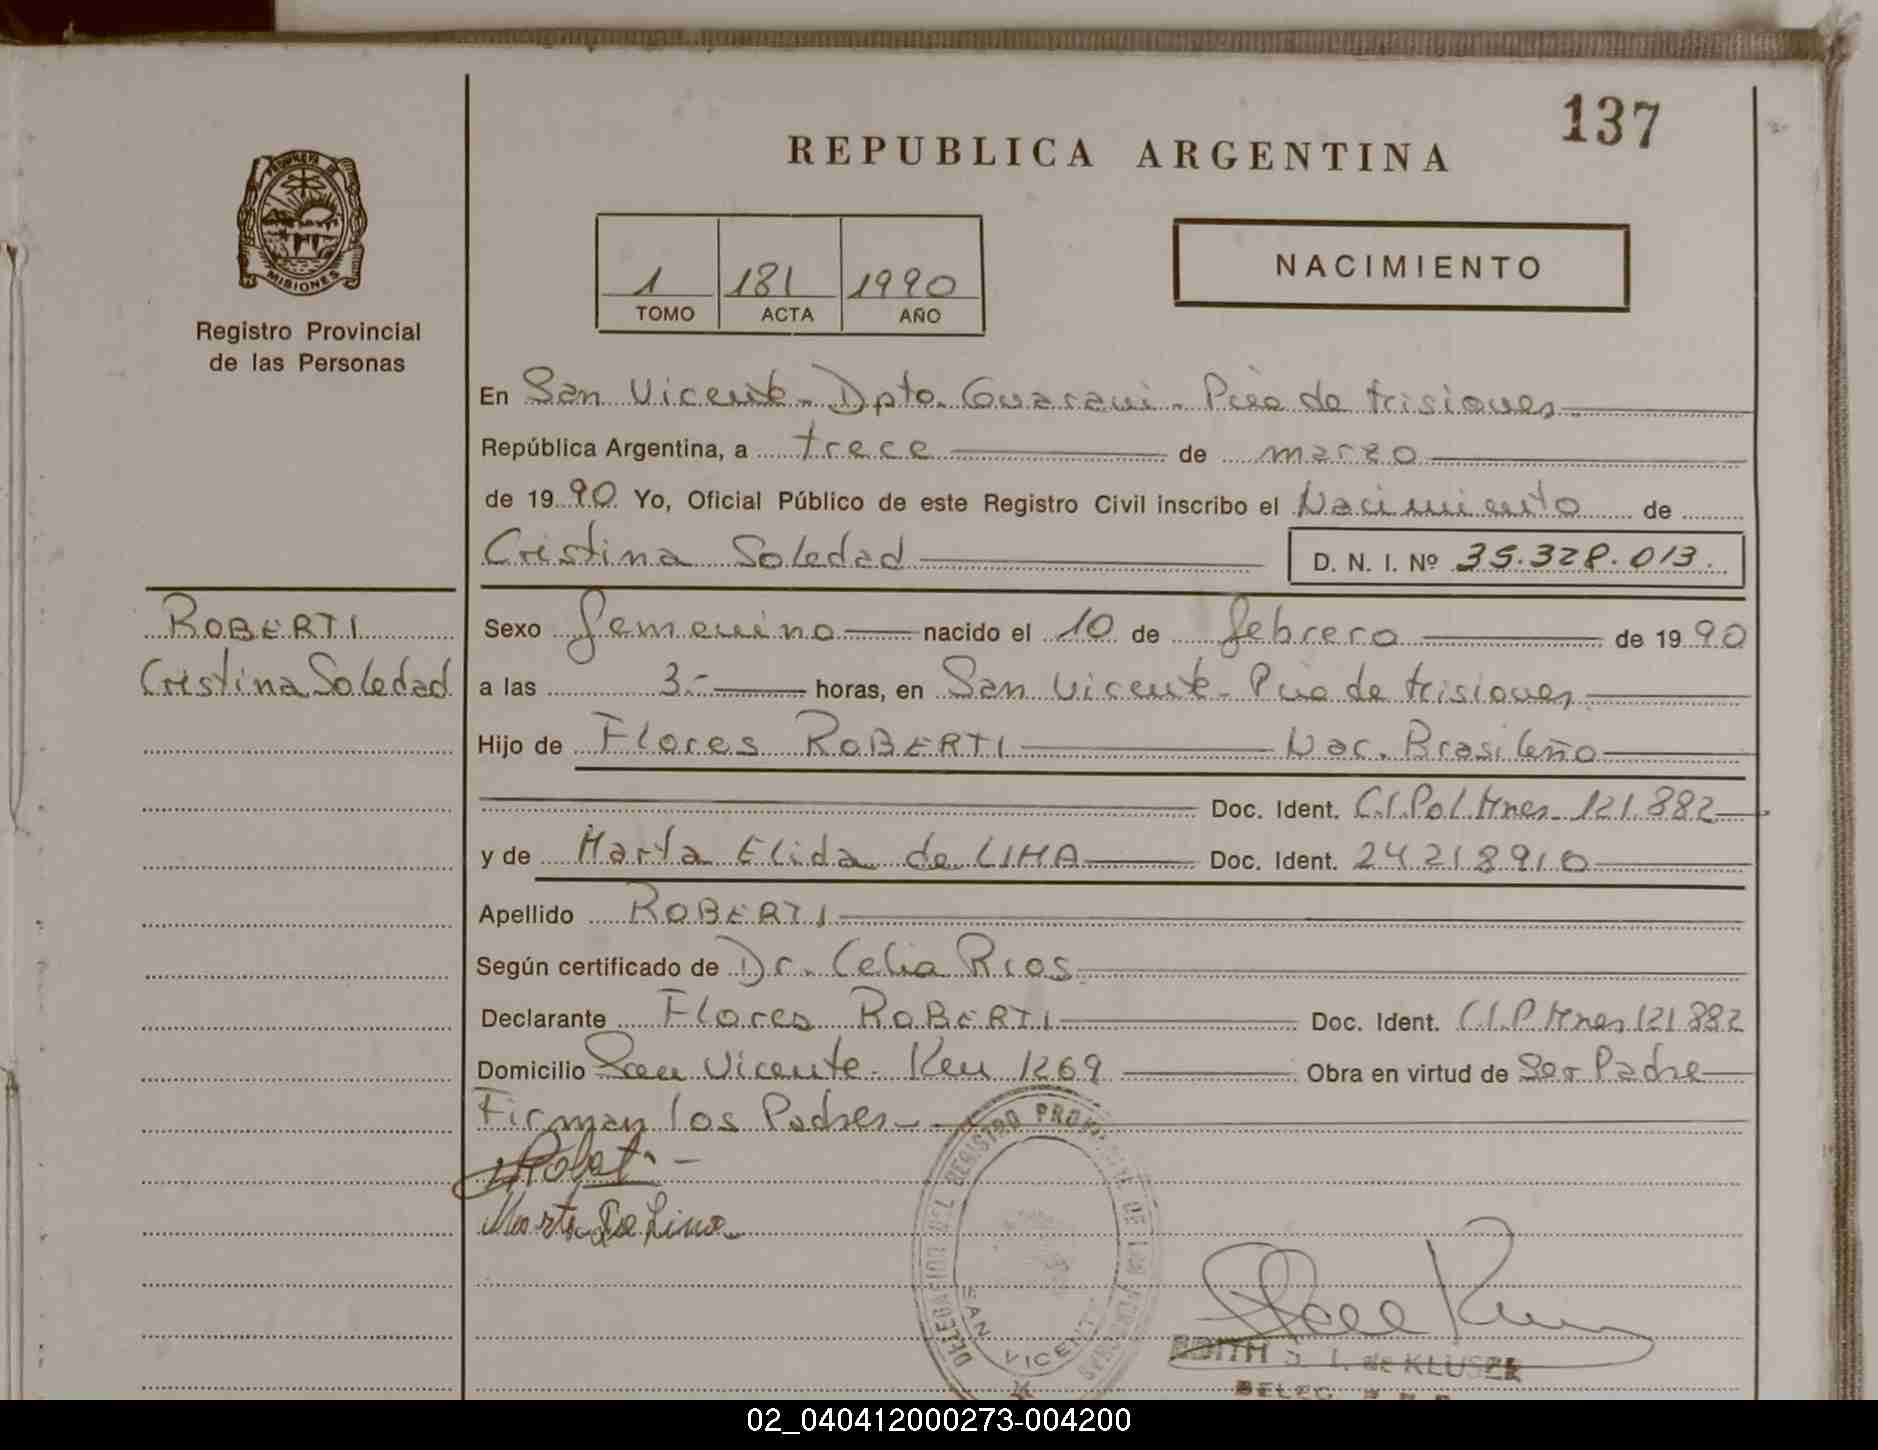 137
REPUBLICA ARGENTINA
PROVINCIA DE MISIONES
Registro Provincial
de las Personas
1 181 1990
TOMO ACTA AÑO
NACIMIENTO
En San Vicente - Dpto. Guarani - Pcia de Misiones
República Argentina, a trece de marzo
de 1990 Yo, Oficial Público de este Registro Civil inscribo el Nacimiento de
Cristina Soledad D. N. I. Nº 35.328.013.
ROBERTI
Cristina Soledad
Sexo femenino nacido el 10 de febrero de 1990
a las 3.- horas, en San Vicente - Pcia de Misiones
Hijo de Flores ROBERTI Nac. Brasileño
Doc. Ident. C.I.Pol.Mnes 121.882
y de Marta Elida de LIMA Doc. Ident. 24.218.910
Apellido ROBERTI
Según certificado de Dr. Celia Rios
Declarante Flores ROBERTI Doc. Ident. C.I.P.Mnes 121.882
Domicilio San Vicente - Km 1269 Obra en virtud de Ser Padre
Firman los Padres -
Marta De Lima
DELEGACION DEL REGISTRO PROVINCIAL DE LAS PERSONAS
SAN VICENTE
EDITH J. I. de KLUSZK
02_040412000273-004200